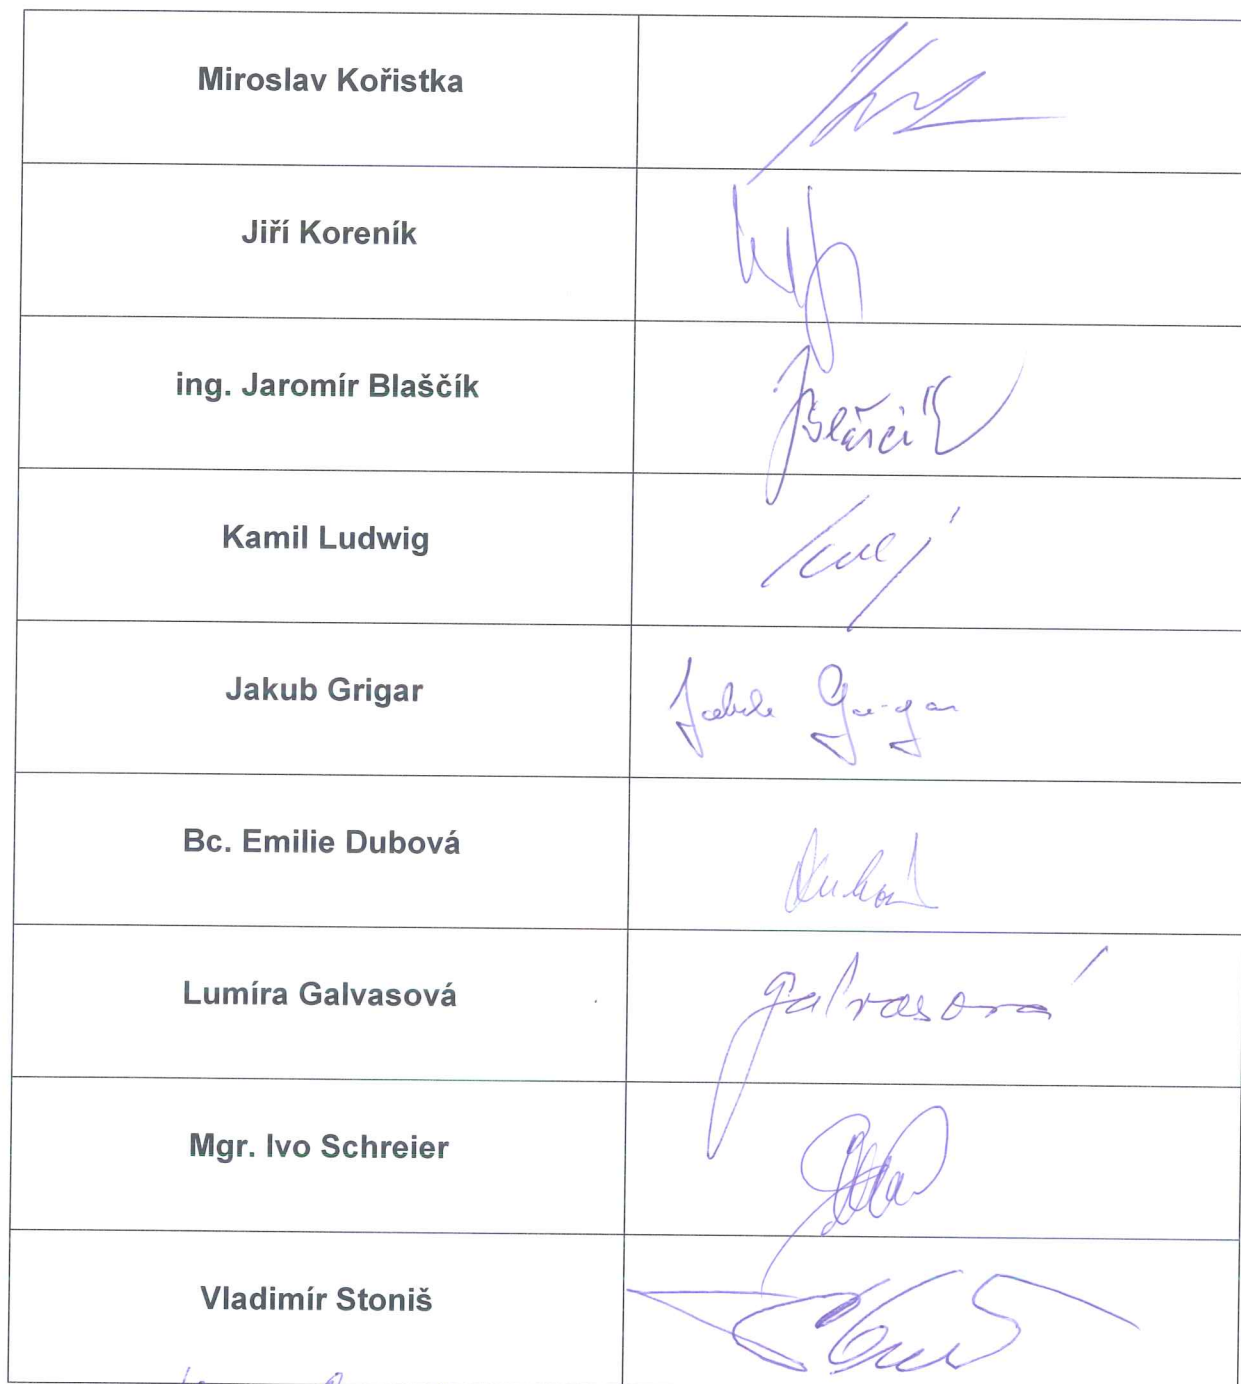 Miroslav Kořistka
Jiří Koreník
ing. Jaromír Blaščík
Blaščík
Kamil Ludwig
Jakub Grigar
Jakub Grigar
Bc. Emilie Dubová
Dubová
Lumíra Galvasová
Galvasová
Mgr. Ivo Schreier
Vladimír Stoniš